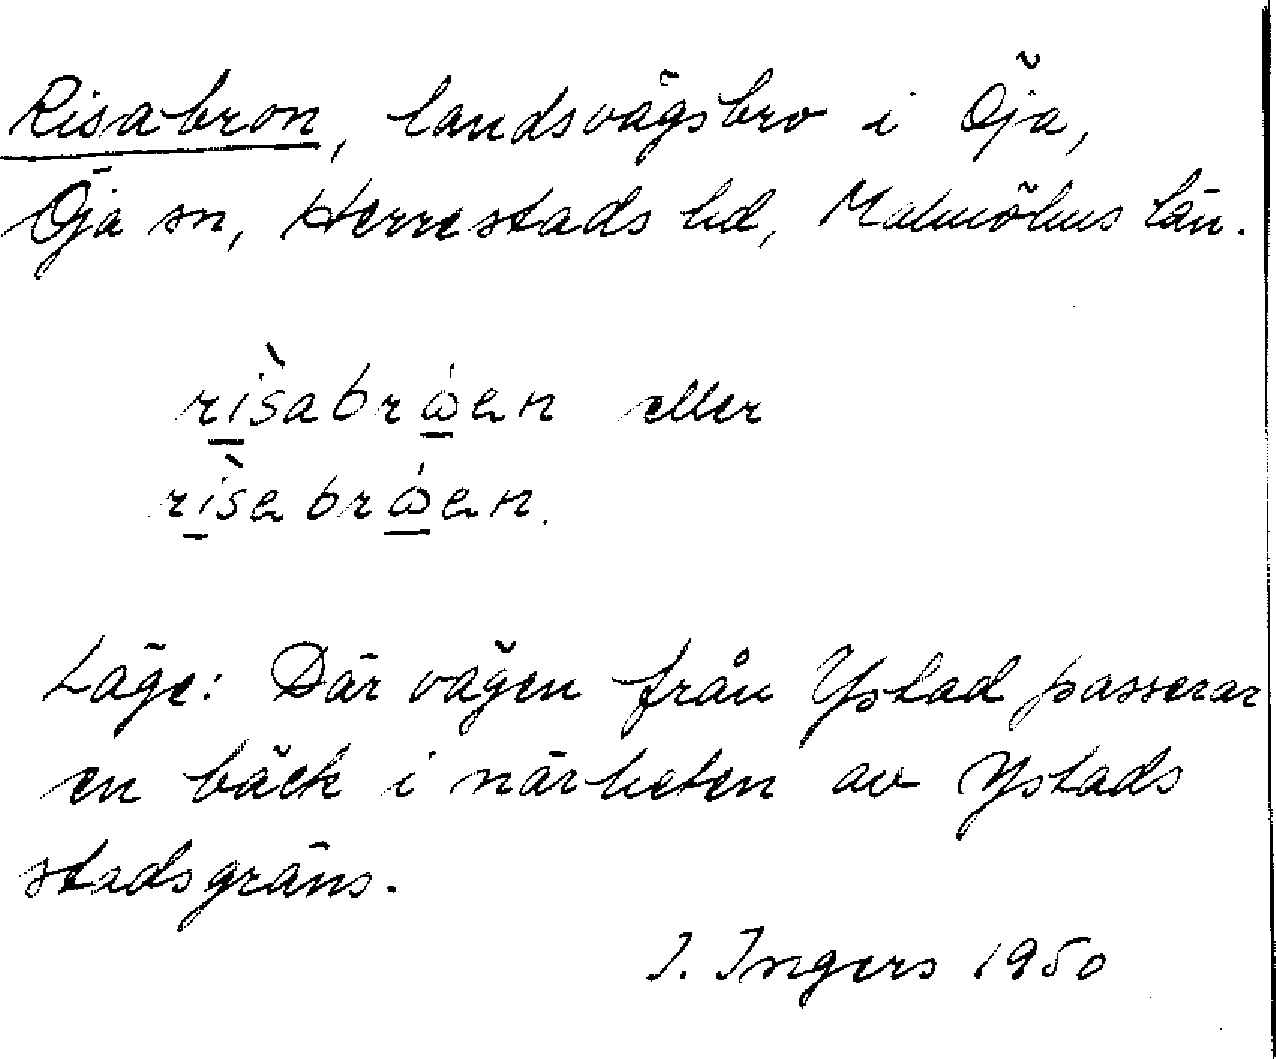 Risabron, landsvägsbro i Öja,
Öja sn, Herrestads hd, Malmöhus län.
rìsabrǻen eller
rìsebrǻen.
Läge: Där vägen från Ystad passerar
en bäck i närheten av Ystads
stadsgräns.
I. Ingers 1950